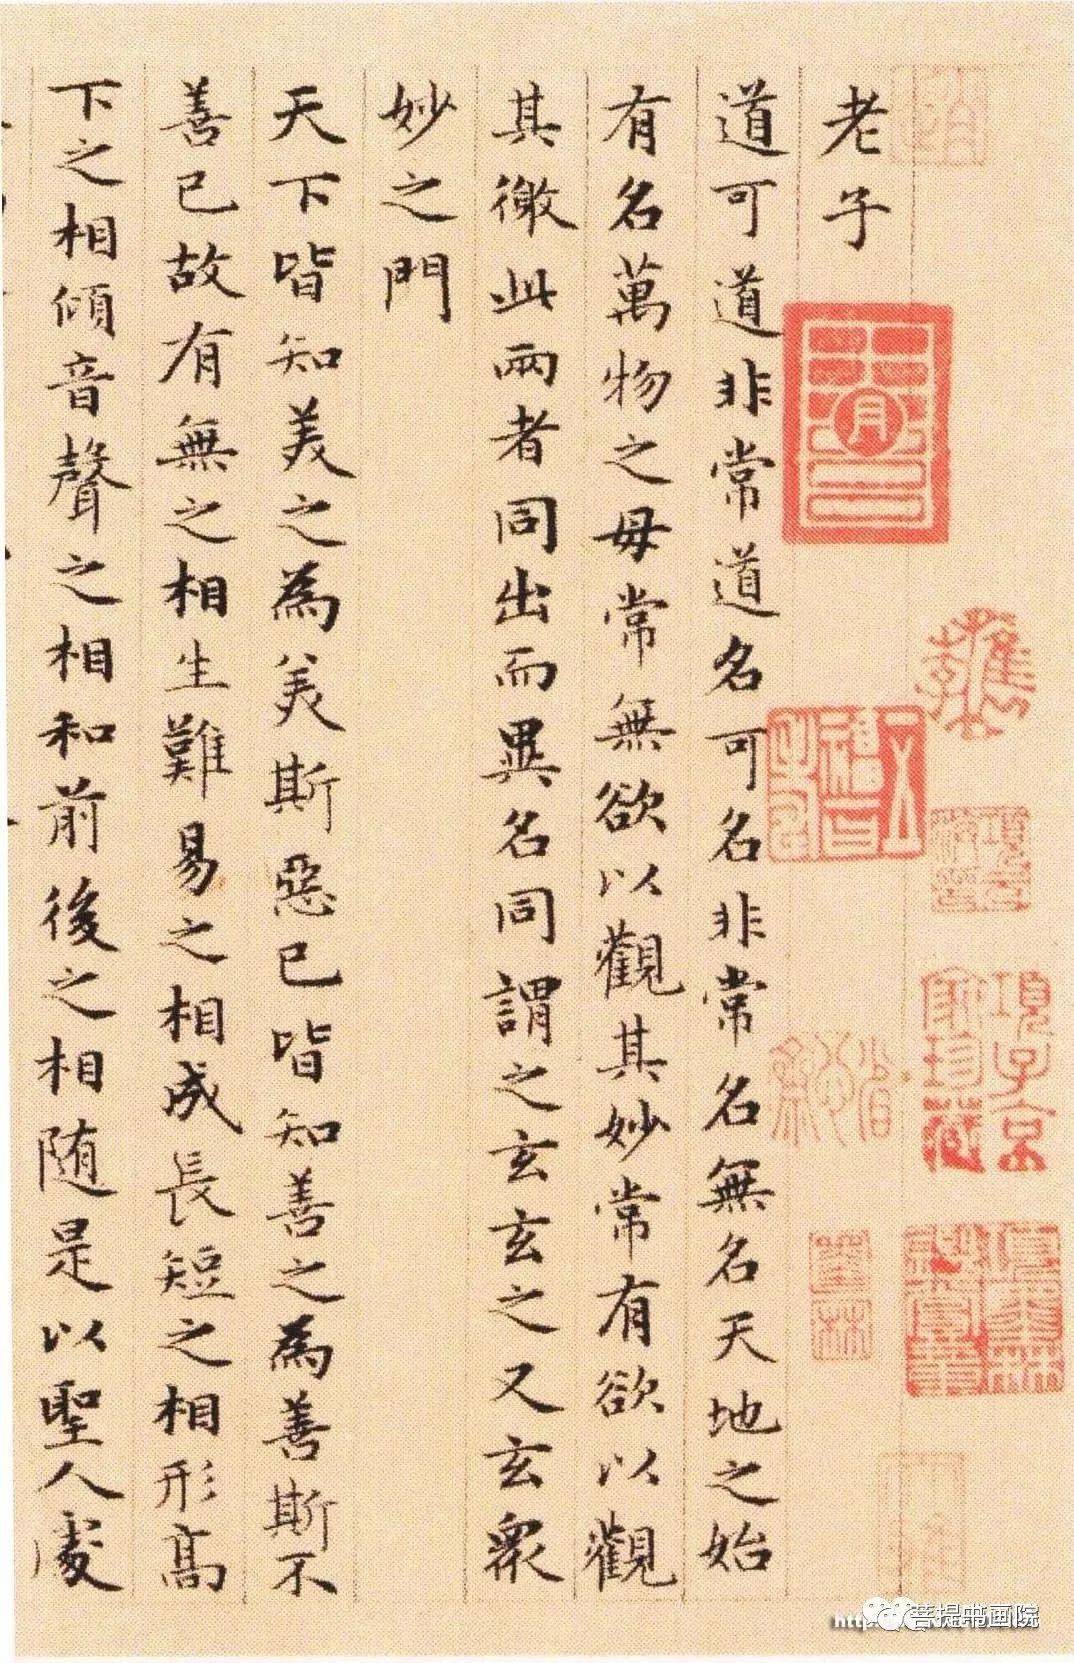 老子
道可道非常道名可名非常名無名天地之始
有名萬物之母常無欲以觀其妙常有欲以觀
其徼此兩者同出而異名同謂之玄玄之又玄衆
妙之門
天下皆知美之為美斯惡已皆知善之為善斯不
善已故有無之相生難易之相成長短之相形高
下之相傾音聲之相和前後之相随是以聖人處
項子京家珍藏
菩提书画院